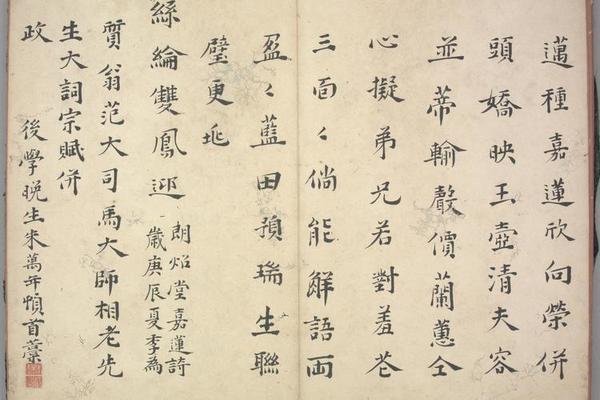 邁種嘉蓮欣向榮併
頭嬌映玉壺清夫容
並蒂輸聲價蘭蕙仝
心擬弟兄若對羞花
三面〻倘能觧語両
盈〻藍田預瑞生聯
璧更兆
絲綸雙鳳迎
朗炤堂嘉蓮詩
歲庚辰夏季為
質翁范大司馬大師相老先
生大詞宗賦併
政
後學晚生朱萬年頓首藁